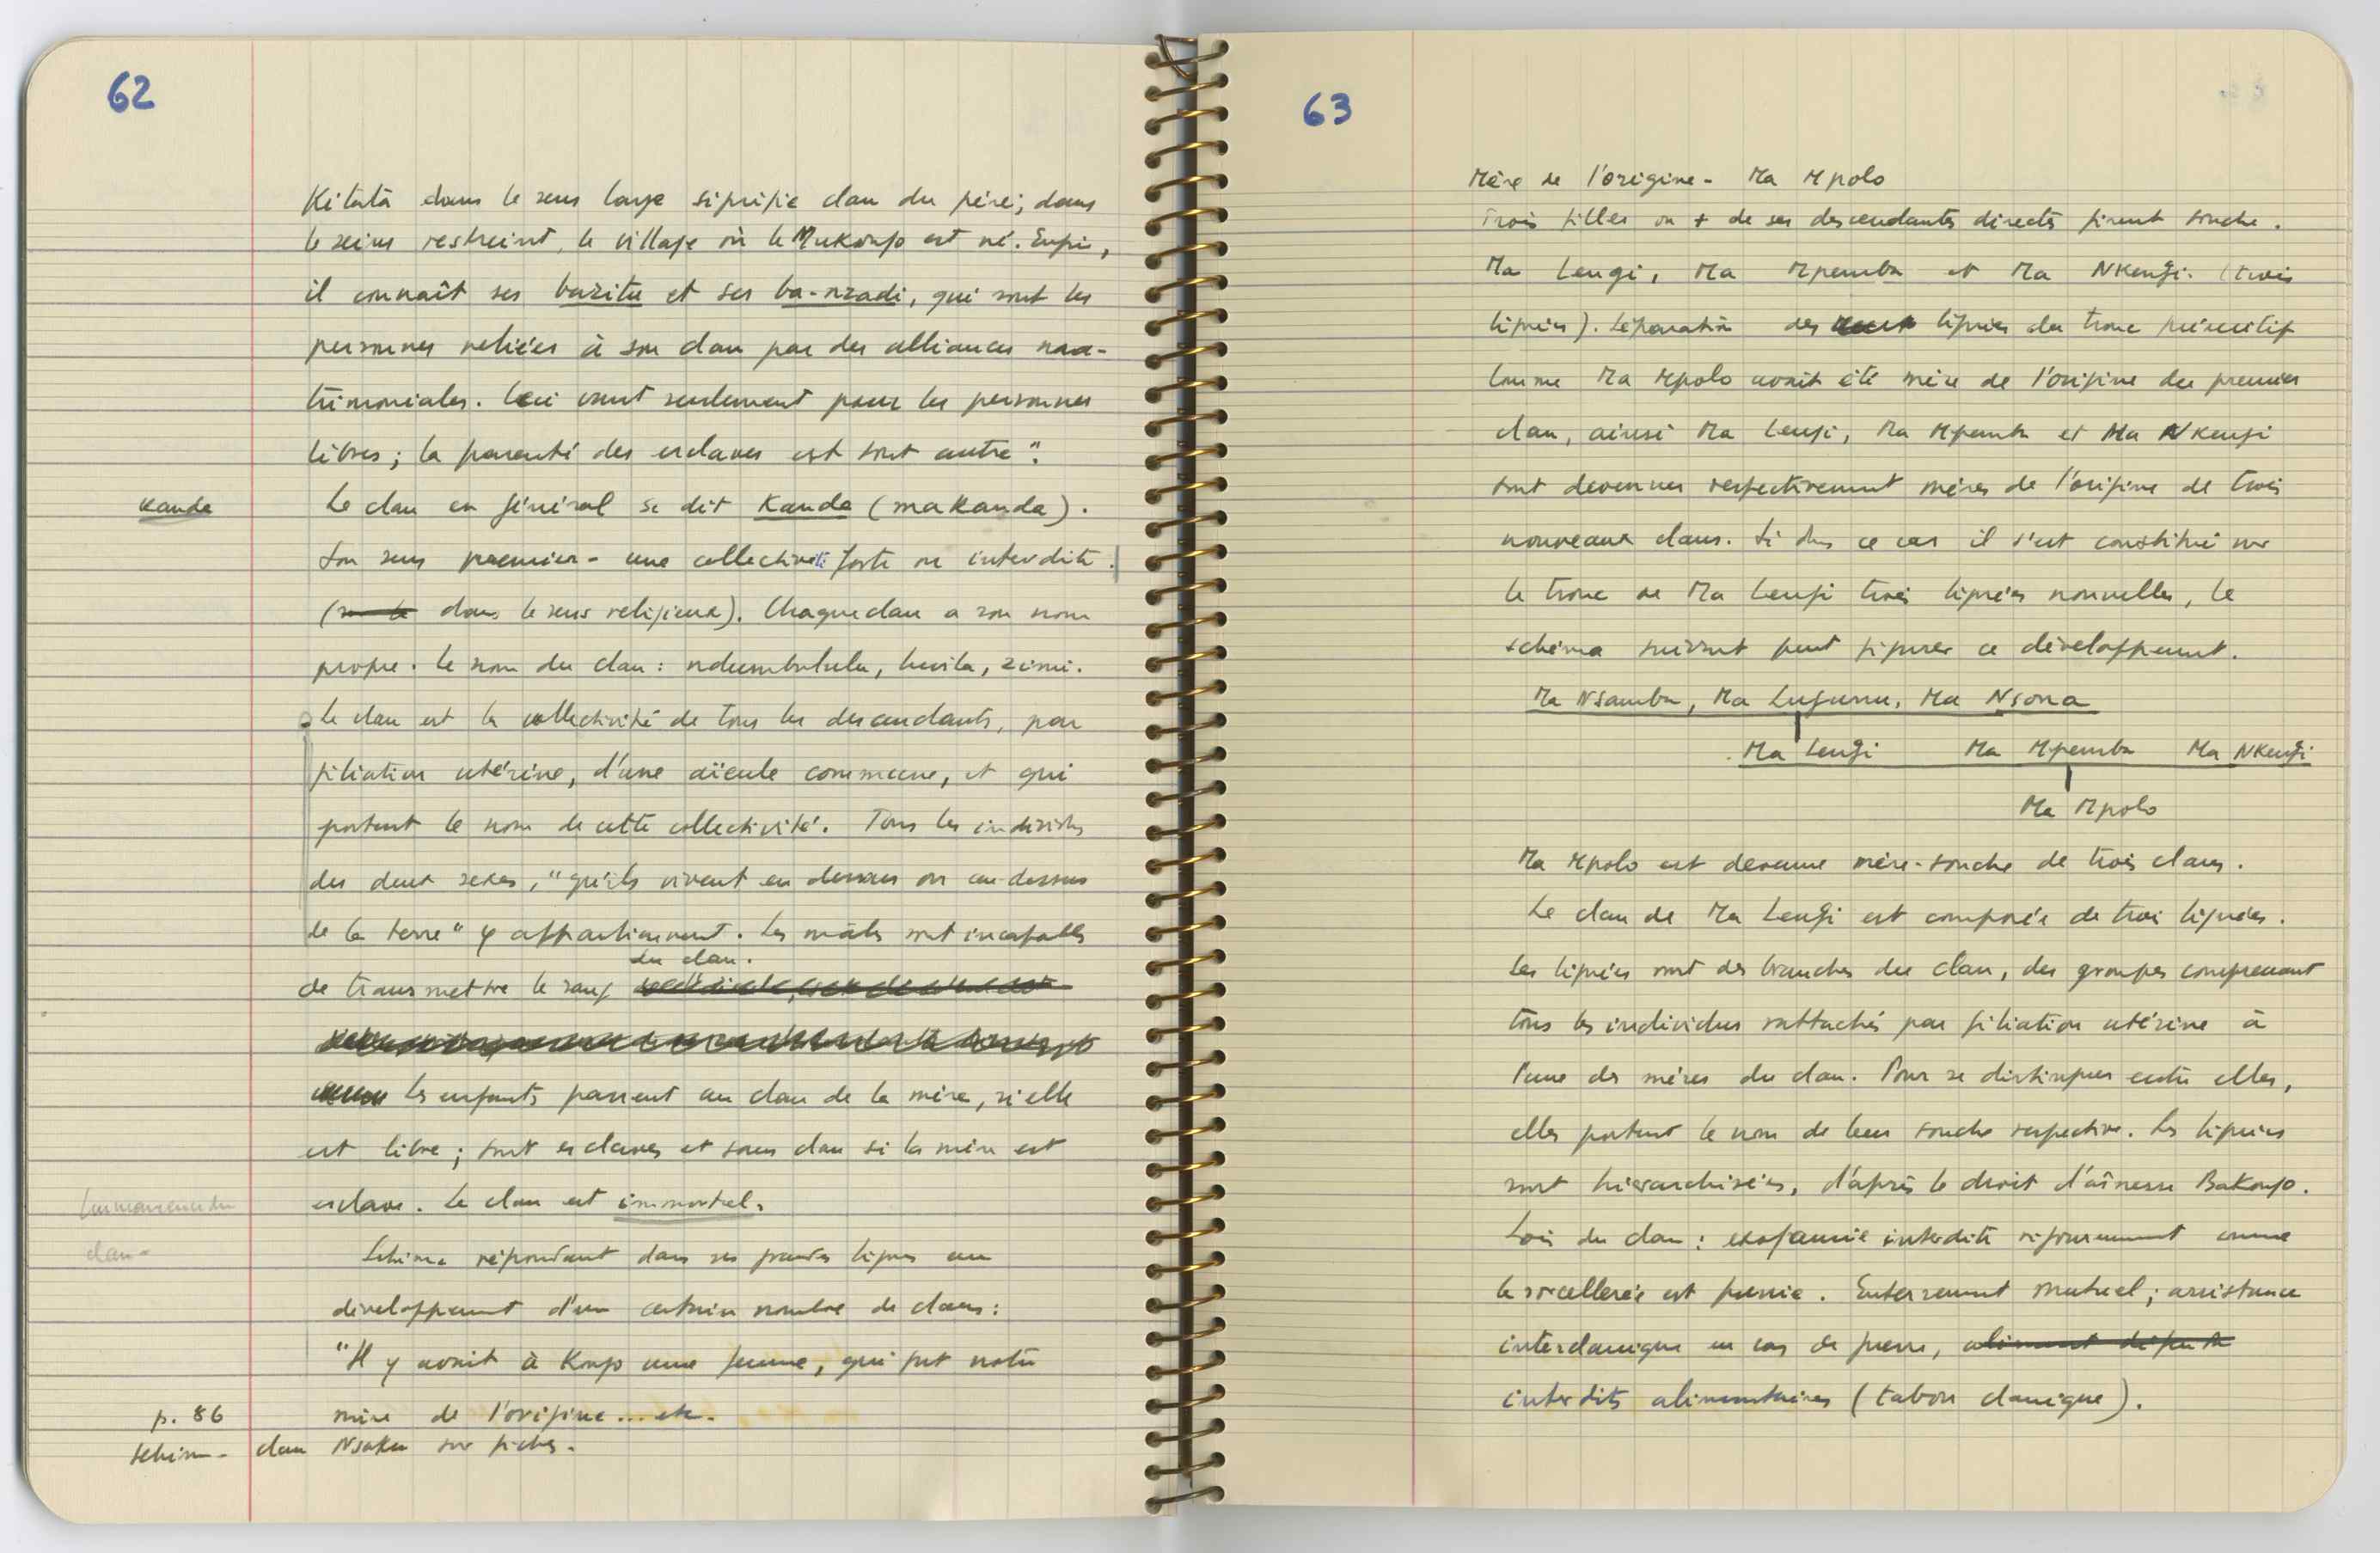 62
Kitátà dans le sens large signifie clan du père; dans
le seins restreint, le village où le Mukongo est né. Enfin,
il connaît ses bazitu et ses ba-nzadi, qui sont les
personnes reliées à son clan par des alliances maa-
trimoniales. Ceci vaut seulement pour les personnes
libres; la parenté des esclaves est tout autre".
kanda
Le clan en général se dit Kanda (makanda).
Son sens premier - une collectivité forte ou interdite.
(dans le sens religieux). Chaque clan a son nom
propre. Le nom du clan: ndumbululu, luvila, zimi.
Le clan est la collectivité de tous les descendants, par
filiation utérine, d'une aïeule commune, et qui
portent le nom de cette collectivité. Tous les individus
des deux sexes, "qu'ils vivent en dessous ou au-dessus
de la terre" y appartiennent. Les mâles sont incapables
du clan.
de transmettre le sang
les enfants passent au clan de la mère, si elle
est libre; sont esclaves et sans clan si la mère est
esclave. Le clan est immortel.
clan-
Schéma répondant dans ses grandes lignes au
développement d'un certain nombre de clans:
"Il y avait à Kongo une femme, qui fut notre
p. 86
mère de l'origine... etc.
schém- clan Nsaku sur fiches.
63
Mère de l'origine - Ma Mpolo
Trois filles ou + de ses descendantes directes firent souche.
Ma Lengi, Ma Mpemba et Ma Nkengi. (trois
lignées). Séparation des lignées du tronc primitif
Comme Ma Mpolo avait été mère de l'origine du premier
clan, ainsi Ma Lengi, Ma Mpemba et Ma Nkengi
sont devenues respectivement mères de l'origine de trois
nouveaux clans. Si dans ce cas il s'est constitué sur
le tronc de Ma Lengi trois lignées nouvelles, le
schéma suivant peut figurer ce développement.
Ma Nsamba, Ma Lugunu, Ma Nsona
Ma Lengi Ma Mpemba Ma Nkengi
Ma Mpolo
Ma Mpolo est devenue mère-souche de trois clans.
Le clan de Ma Lengi est composée de trois lignées.
Les lignées sont des branches du clan, des groupes comprenant
tous les individus rattachés par filiation utérine à
l'une des mères du clan. Pour se distinguer entre elles,
elles portent le nom de leur souche respective. Les lignées
sont hiérarchisées, d'après le droit d'aînesse Bakongo.
Lois du clan: exogamie interdite rigoureusement comme
la sorcellerie est punie. Enterrement mutuel; assistance
interclanique en cas de guerre,
interdits alimentaires (tabou clanique).